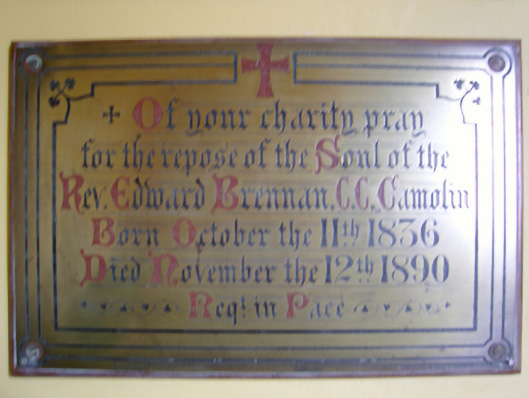 + Of your charity pray
for the repose of the Soul of the
Rev. Edward Brennan. C.C. Camolin
Born October the 11th 1836
Died November the 12th 1890
Reqt. in Pace